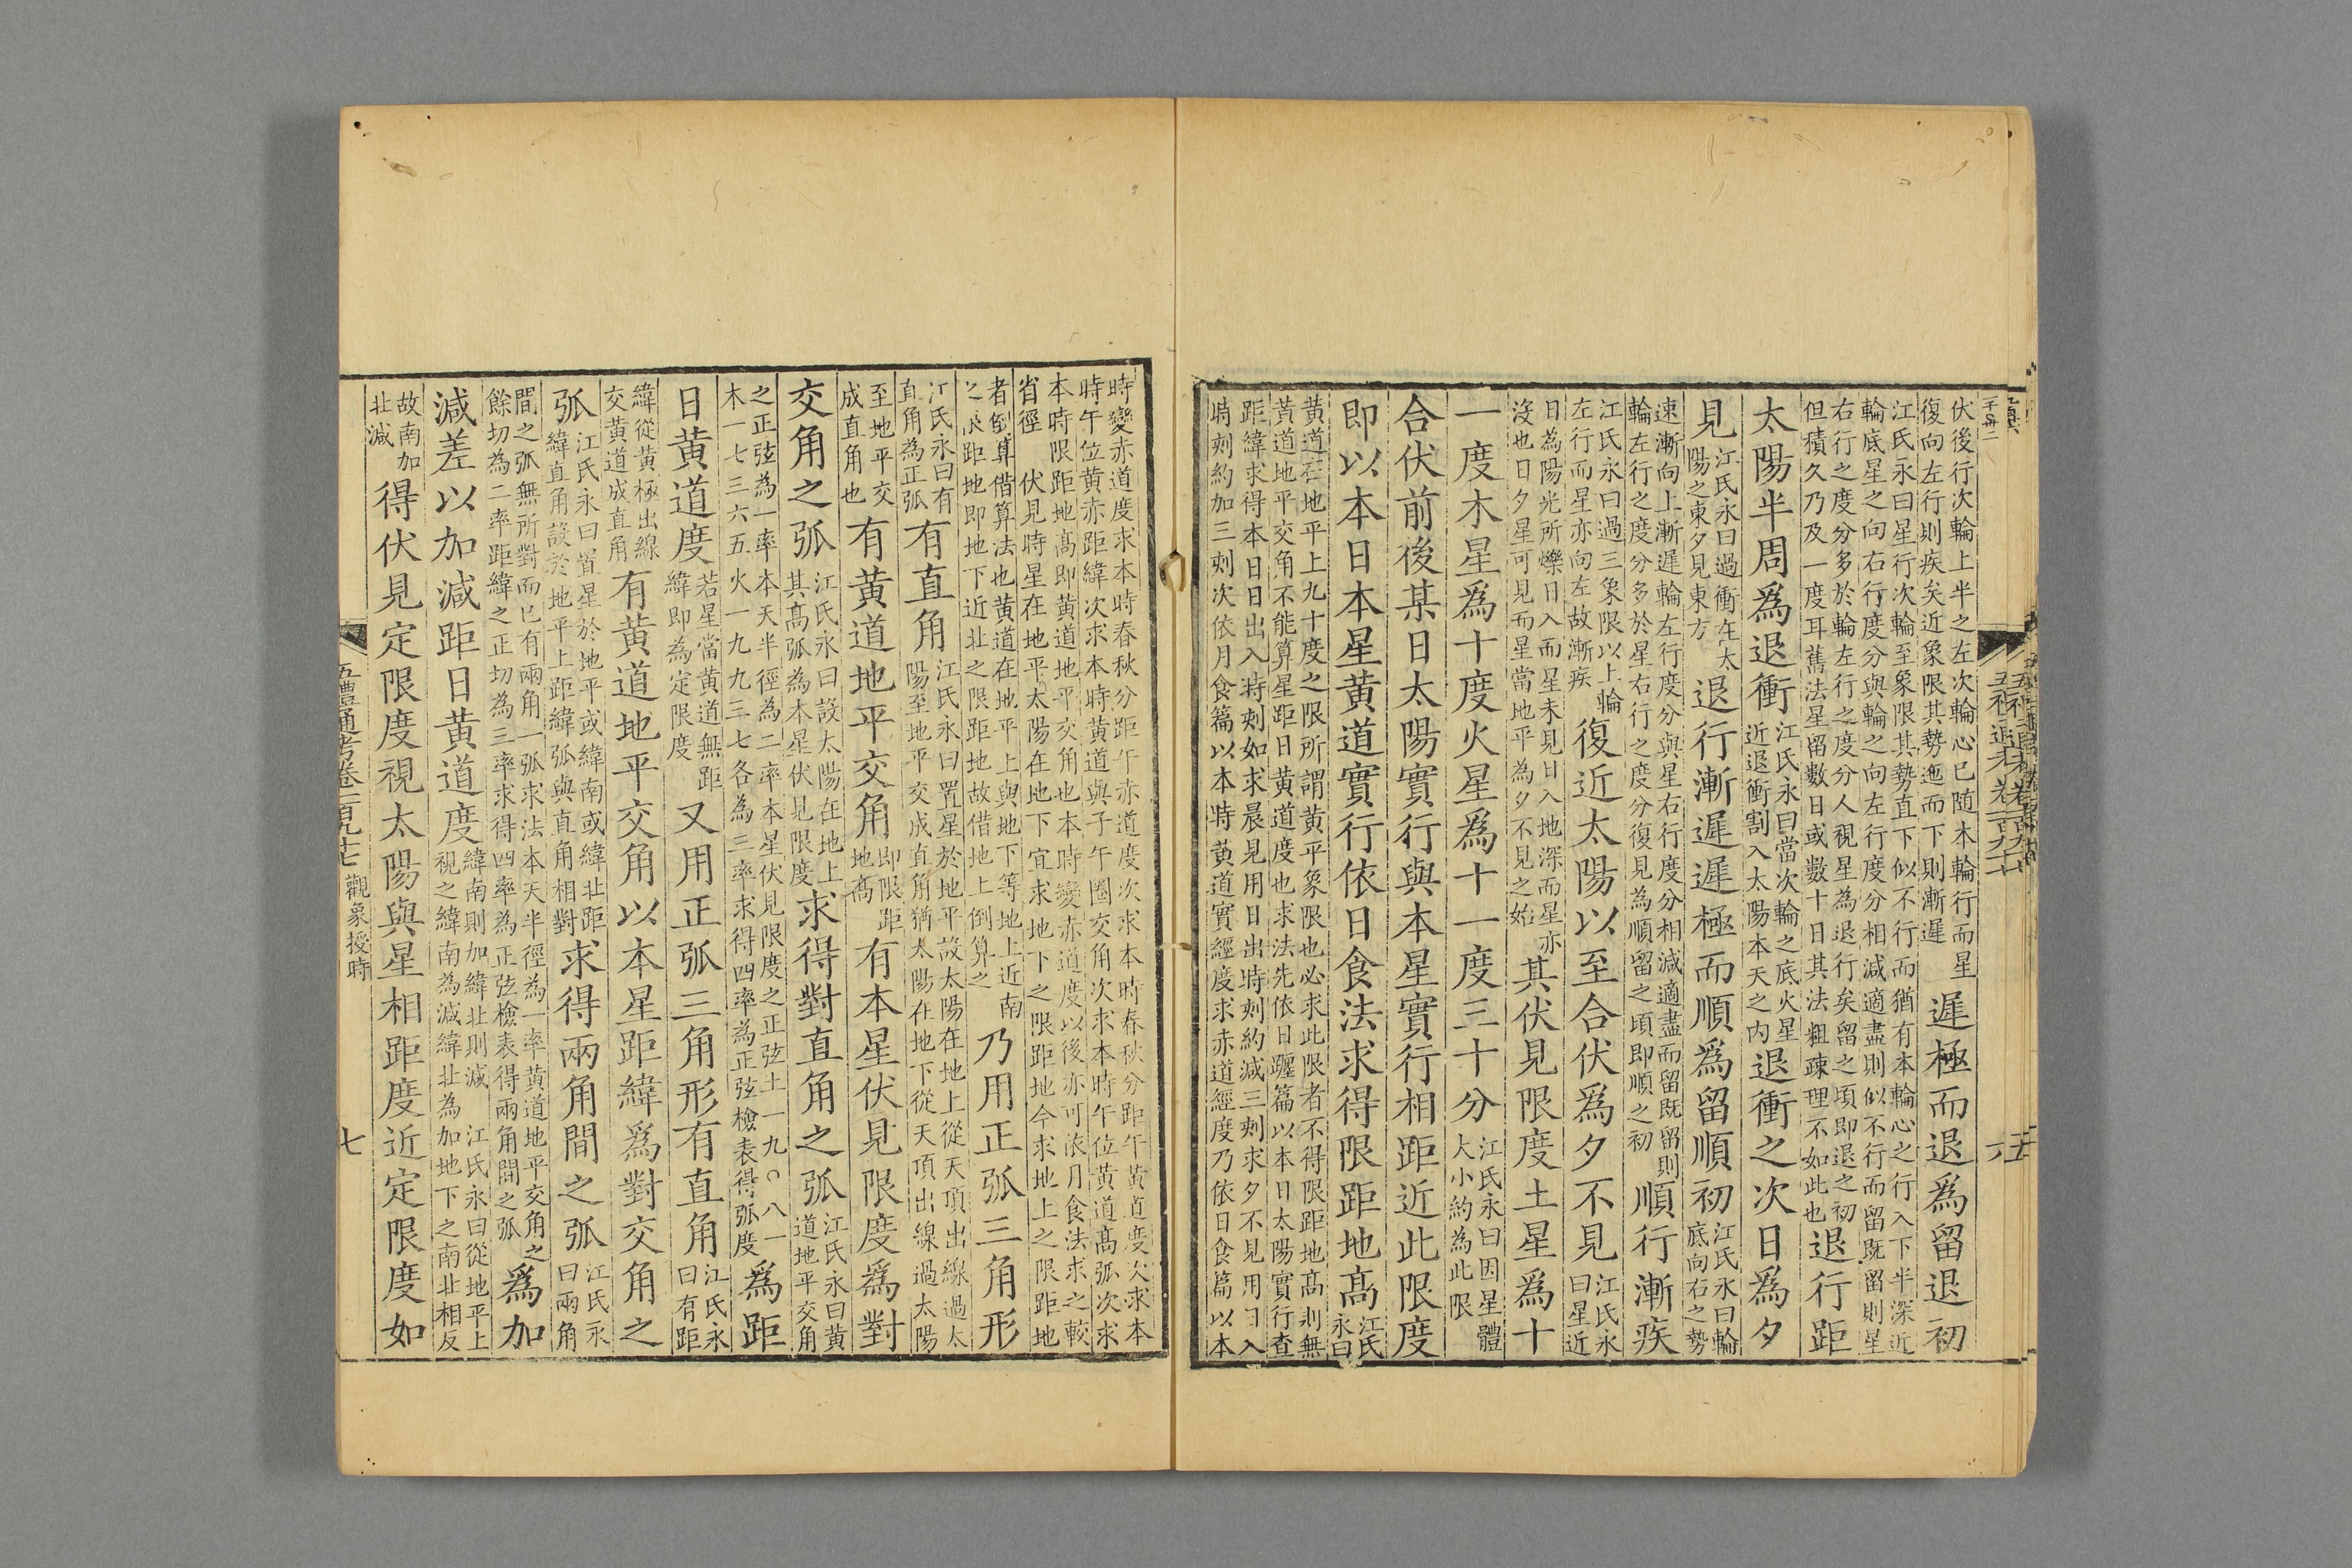 伏後行次輪上半之左次輪心已隨本輪行而星
復向左行則疾矣近象限其勢迤而下則漸遲
遲極而退爲留退初
江氏永曰星行次輪至象限其勢直下似不行而猶有本輪心之行入下半深近
輪底星之向右行度分與輪之向左行度分相減適盡則似不行而留既留則星
右行之度分多於輪左行之度分人視星為退行矣留之頃即退之初
但積久乃及一度耳舊法星留數日或數十日其法粗疎理不如此也
退行距
太陽半周爲退衝
江氏永曰當次輪之底火星
近退衝割入太陽本天之内
退衝之次日爲夕
見
江氏永曰過衝在太
陽之東夕見東方
退行漸遲遲極而順爲留順初
江氏永曰輪
底向右之勢
速漸向上漸遲輪左行度分與星右行度分相減適盡而留既留則
輪左行之度分多於星右行之度分復見為順留之頃即順之初
順行漸疾
江氏永曰過三象限以上輪
左行而星亦向左故漸疾
復近太陽以至合伏爲夕不見
江氏永
曰星近
日為陽光所爍日入而星未見日入地深而星亦
沒也日夕星可見而星當地平為夕不見之始
其伏見限度土星爲十
一度木星爲十度火星爲十一度三十分
江氏永曰因星體
大小約為此限
合伏前後某日太陽實行與本星實行相距近此限度
即以本日本星黄道實行依日食法求得限距地高
江氏
永曰
黄道在地平上九十度之限所謂黄平象限也必求此限者不得限距地高則無
黄道地平交角不能算星距日黄道度也求法先依日躔篇以本日太陽實行查
距緯求得本日日出入時刻如求晨見用日出時刻約減三刻求夕不見用日入
時刻約加三刻次依月食篇以本時黄道實經度求赤道經度乃依日食篇以本
時變赤道度求本時春秋分距午赤道度次求本時春秋分距午黄道度次求本
時午位黄赤距緯次求本時黄道與子午圈交角次求本時午位黄道高弧次求
本時限距地高即黄道地平交角也本時變赤道度以後亦可依月食法求之較
省徑　伏見時星在地平太陽在地下宜求地下之限距地今求地上之限距地
者倒算借算法也黄道在地平上與地下等地上近南
之限距地即地下近北之限距地故借地上倒算之
乃用正弧三角形
江氏永曰有
直角為正弧
有直角
江氏永曰置星於地平設太陽在地上從天頂出線過太
陽至地平交成直角猶太陽在地下從天頂出線過太陽
至地平交
成直角也
有黄道地平交角
即限距
地高
有本星伏見限度爲對
交角之弧
江氏永曰設太陽在地上
其高弧為本星伏見限度
求得對直角之弧
江氏永曰黄
道地平交角
之正弦為一率本天半徑為二率本星伏見限度之正弦土一九〇八一
木一七三六五火一九九三七各為三率求得四率為正弦檢表得弧度
爲距
日黄道度
若星當黄道無距
緯即為定限度
又用正弧三角形有直角
江氏永
曰有距
緯從黄極出線
交黄道成直角
有黄道地平交角以本星距緯爲對交角之
弧
江氏永曰置星於地平或緯南或緯北距
緯直角設於地平上距緯弧與直角相對
求得兩角間之弧
江氏永
曰兩角
間之弧無所對而已有兩角一弧求法本天半徑為一率黄道地平交角之
餘切為二率距緯之正切為三率求得四率為正弦檢表得兩角間之弧
爲加
減差以加減距日黄道度
緯南則加緯北則減　江氏永曰從地平上
視之緯南為減緯北為加地下之南北相反
故南加
北減
得伏見定限度視太陽與星相距度近定限度如
五禮通考卷一百九十七　觀象授時
七